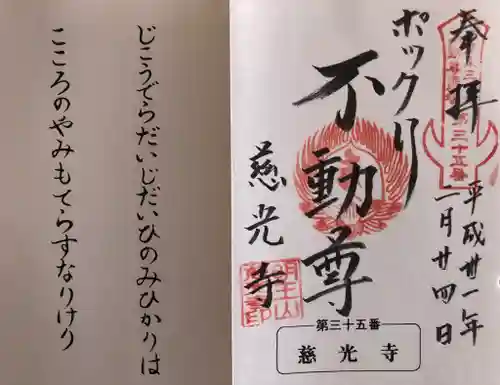 奉拝
第三十五番
平成廿一年
二月廿四日
ポックリ
不動尊
慈光寺
第三十五番
慈光寺
じこうでらだいじだいひのみひかりは
こころのやみもてらすなりけり